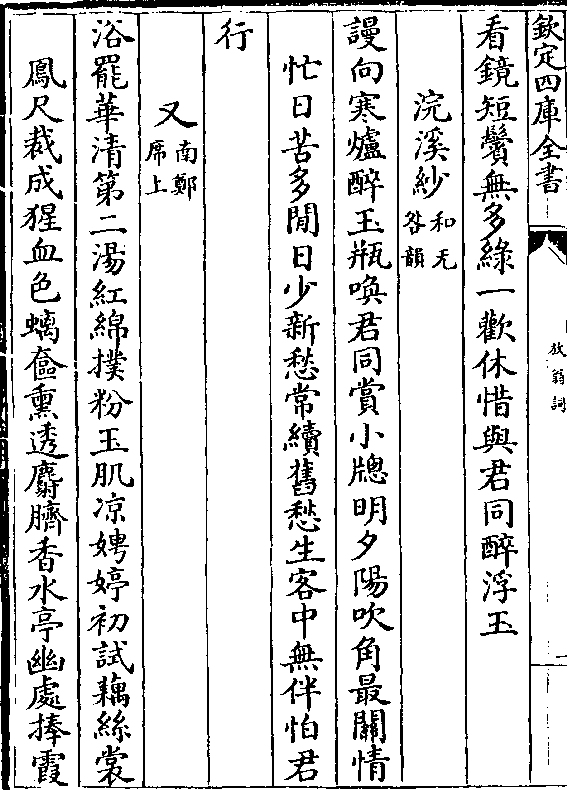 欽定四庫全書
放翁詞
看鏡短鬢無多綠一歡休惜與君同醉浮玉
浣溪紗和无咎韻
謾向寒爐醉玉瓶喚君同賞小牕明夕陽吹角最關情
忙日苦多閒日少新愁常續舊愁生客中無伴怕君
行
又南鄭席上
浴罷華清第二湯紅綿撲粉玉肌凉娉婷初試藕絲裳
鳳尺裁成猩血色螭奩熏透麝臍香水亭幽處捧霞